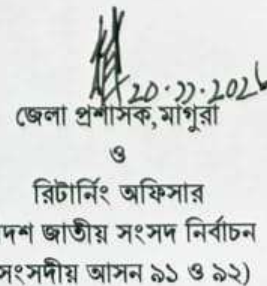 জেলা প্রশাসক, মাগুরা
ও
রিটার্নিং অফিসার
দশ জাতীয় সংসদ নির্বাচন
সংসদীয় আসন ৯১ ও ৯২)